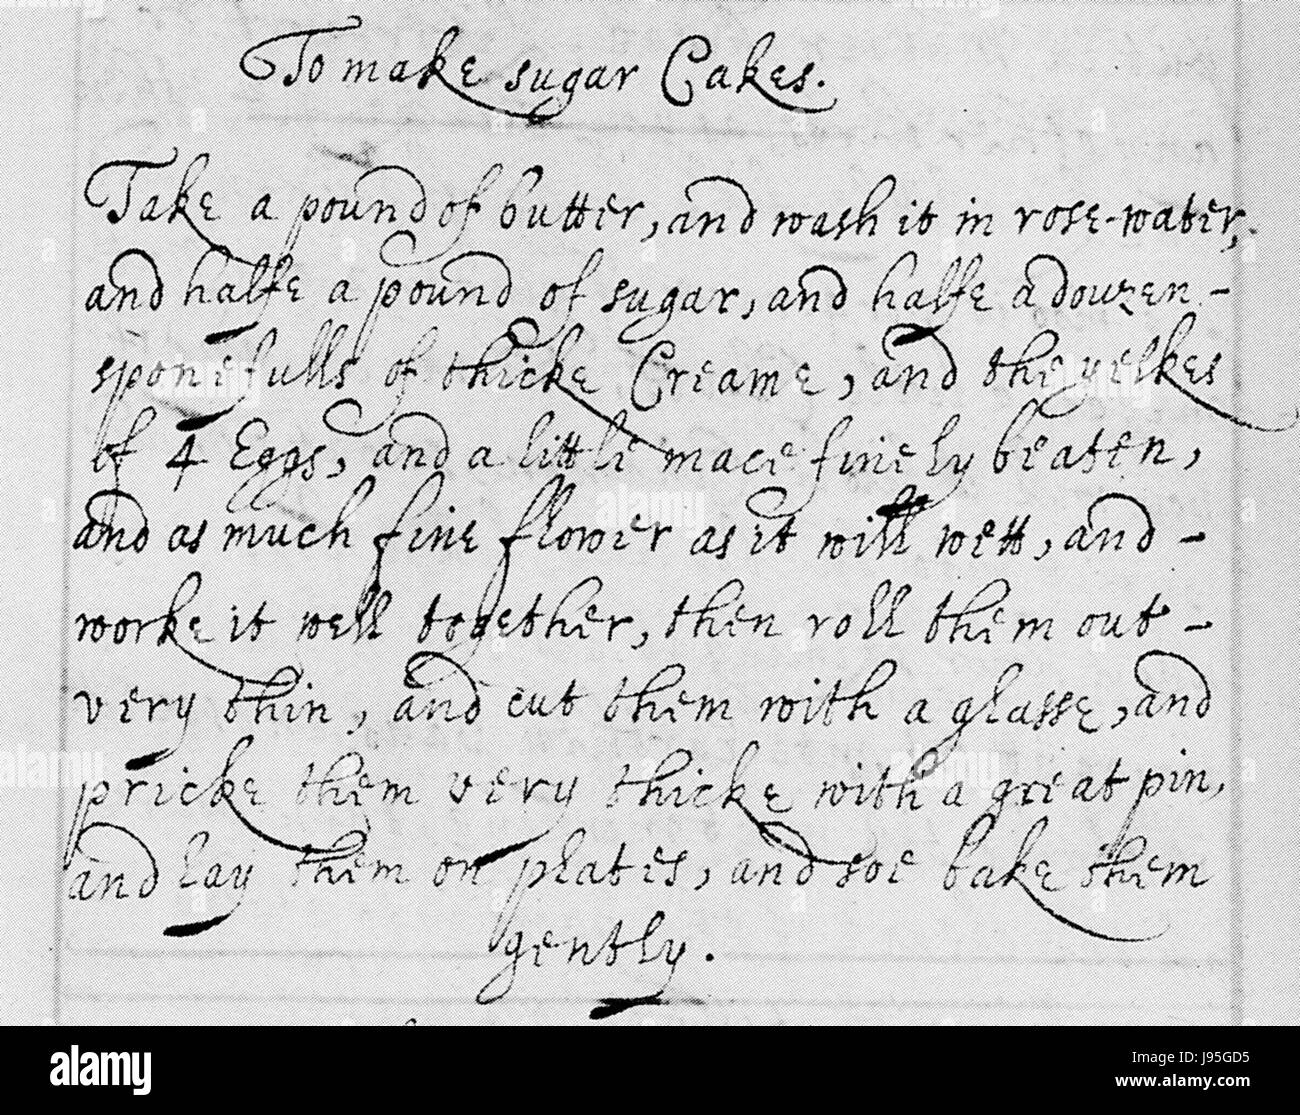 To make sugar Cakes.
Take a pound of butter, and wash it in rose-water,
and halfe a pound of sugar, and halfe a douzen -
sponefulls of thicke Creame, and the yelkes
of 4 Eggs, and a little mace finely beaten,
and as much fine flower as it will wett, and -
worke it well together, then roll them out -
very thin, and cut them with a glasse, and
pricke them very thicke with a great pin,
and lay them on plates, and soe bake them
gently.
alamy
Image ID: J95GD5
www.alamy.com